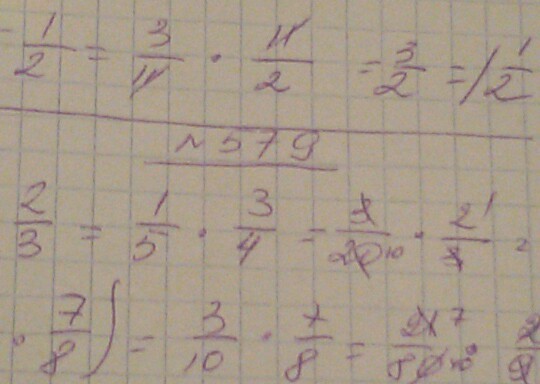 - 1/2 = 3/11 · 11/2 = 3/2 = 1 1/2
№579
2/3 = 1/5 · 3/4 = 3/20 10 · 2 1/3 =
· 7/8) = 3/10 · 7/8 = 21 7/80 · 2